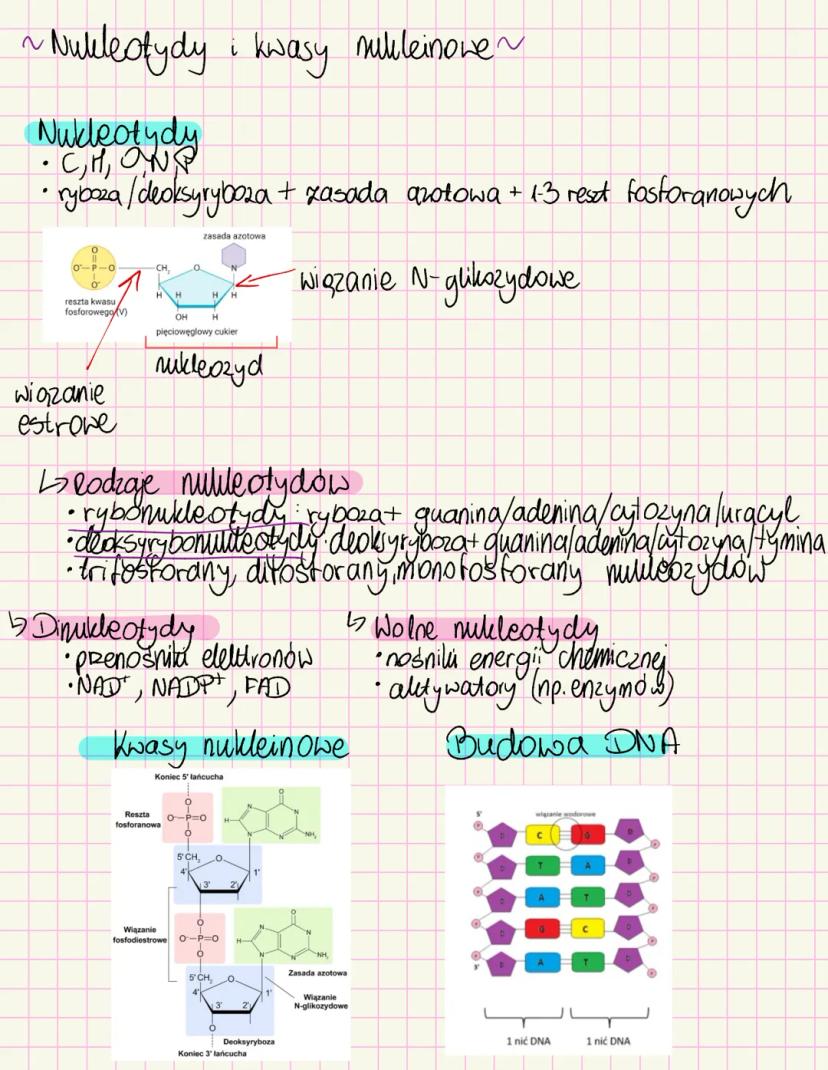 ~Nukleotydy i kwasy nukleinowe~
Nukleotydy
• C, H, O, N, P
• ryboza/deoksyryboza + zasada azotowa + 1-3 reszt fosforanowych
zasada azotowa
O⁻ P O CH₂ O N
O
O⁻
H H H H
OH H
reszta kwasu
fosforowego (V)
pięciowęglowy cukier
wiązanie N-glikozydowe
nukleozyd
wiązanie
estrowe
↳ Rodzaje nukleotydów
• rybonukleotydy: ryboza + guanina/adenina/cytozyna/uracyl
• deoksyrybonukleotydy: deoksyryboza + guanina/adenina/cytozyna/tymina
• trifosforany, difosforany, monofosforany nukleozydów
↳ Dinukleotydy
• przenośniki elektronów
• NAD⁺, NADP⁺, FAD
↳ Wolne nukleotydy
• nośniki energii chemicznej
• aktywatory (np. enzymów)
Kwasy nukleinowe
Koniec 5' łańcucha
Reszta
fosforanowa
O
O⁻—P=O
O
O
N N H N N NH₂
5' CH₂ O
4' 1'
3' 2'
Wiązanie
fosfodiestrowe
O
O⁻—P=O
O
O
N N H N N NH₂
Zasada azotowa
5' CH₂ O
4' 1'
3' 2'
Wiązanie
N-glikozydowe
O
Deoksyryboza
Koniec 3' łańcucha
Budowa DNA
wiązanie wodorowe
5'
P D C G D P
P D T A D P
P D A T D P
P D G C D P
P D A T D P
3'
1 nić DNA 1 nić DNA